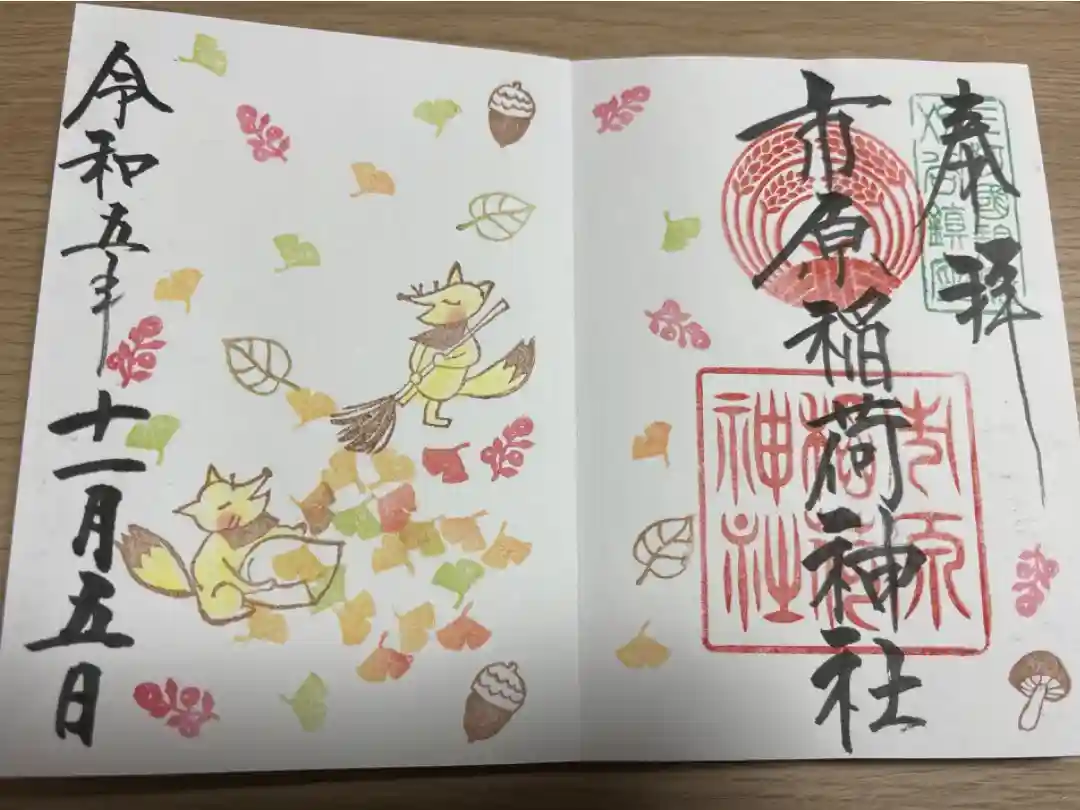 奉拝
市原稲荷神社
市原
稲荷
神社
令和五年十一月五日